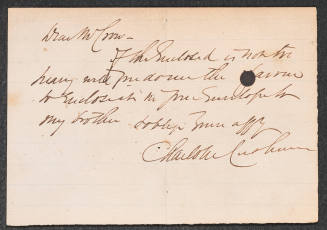 Dear Mr Crow -
If the Enclosed is not too
heavy will you do me the favour
to Enclose it in your Envelope to
my brother & oblige Yours affy
Charlotte Cushman